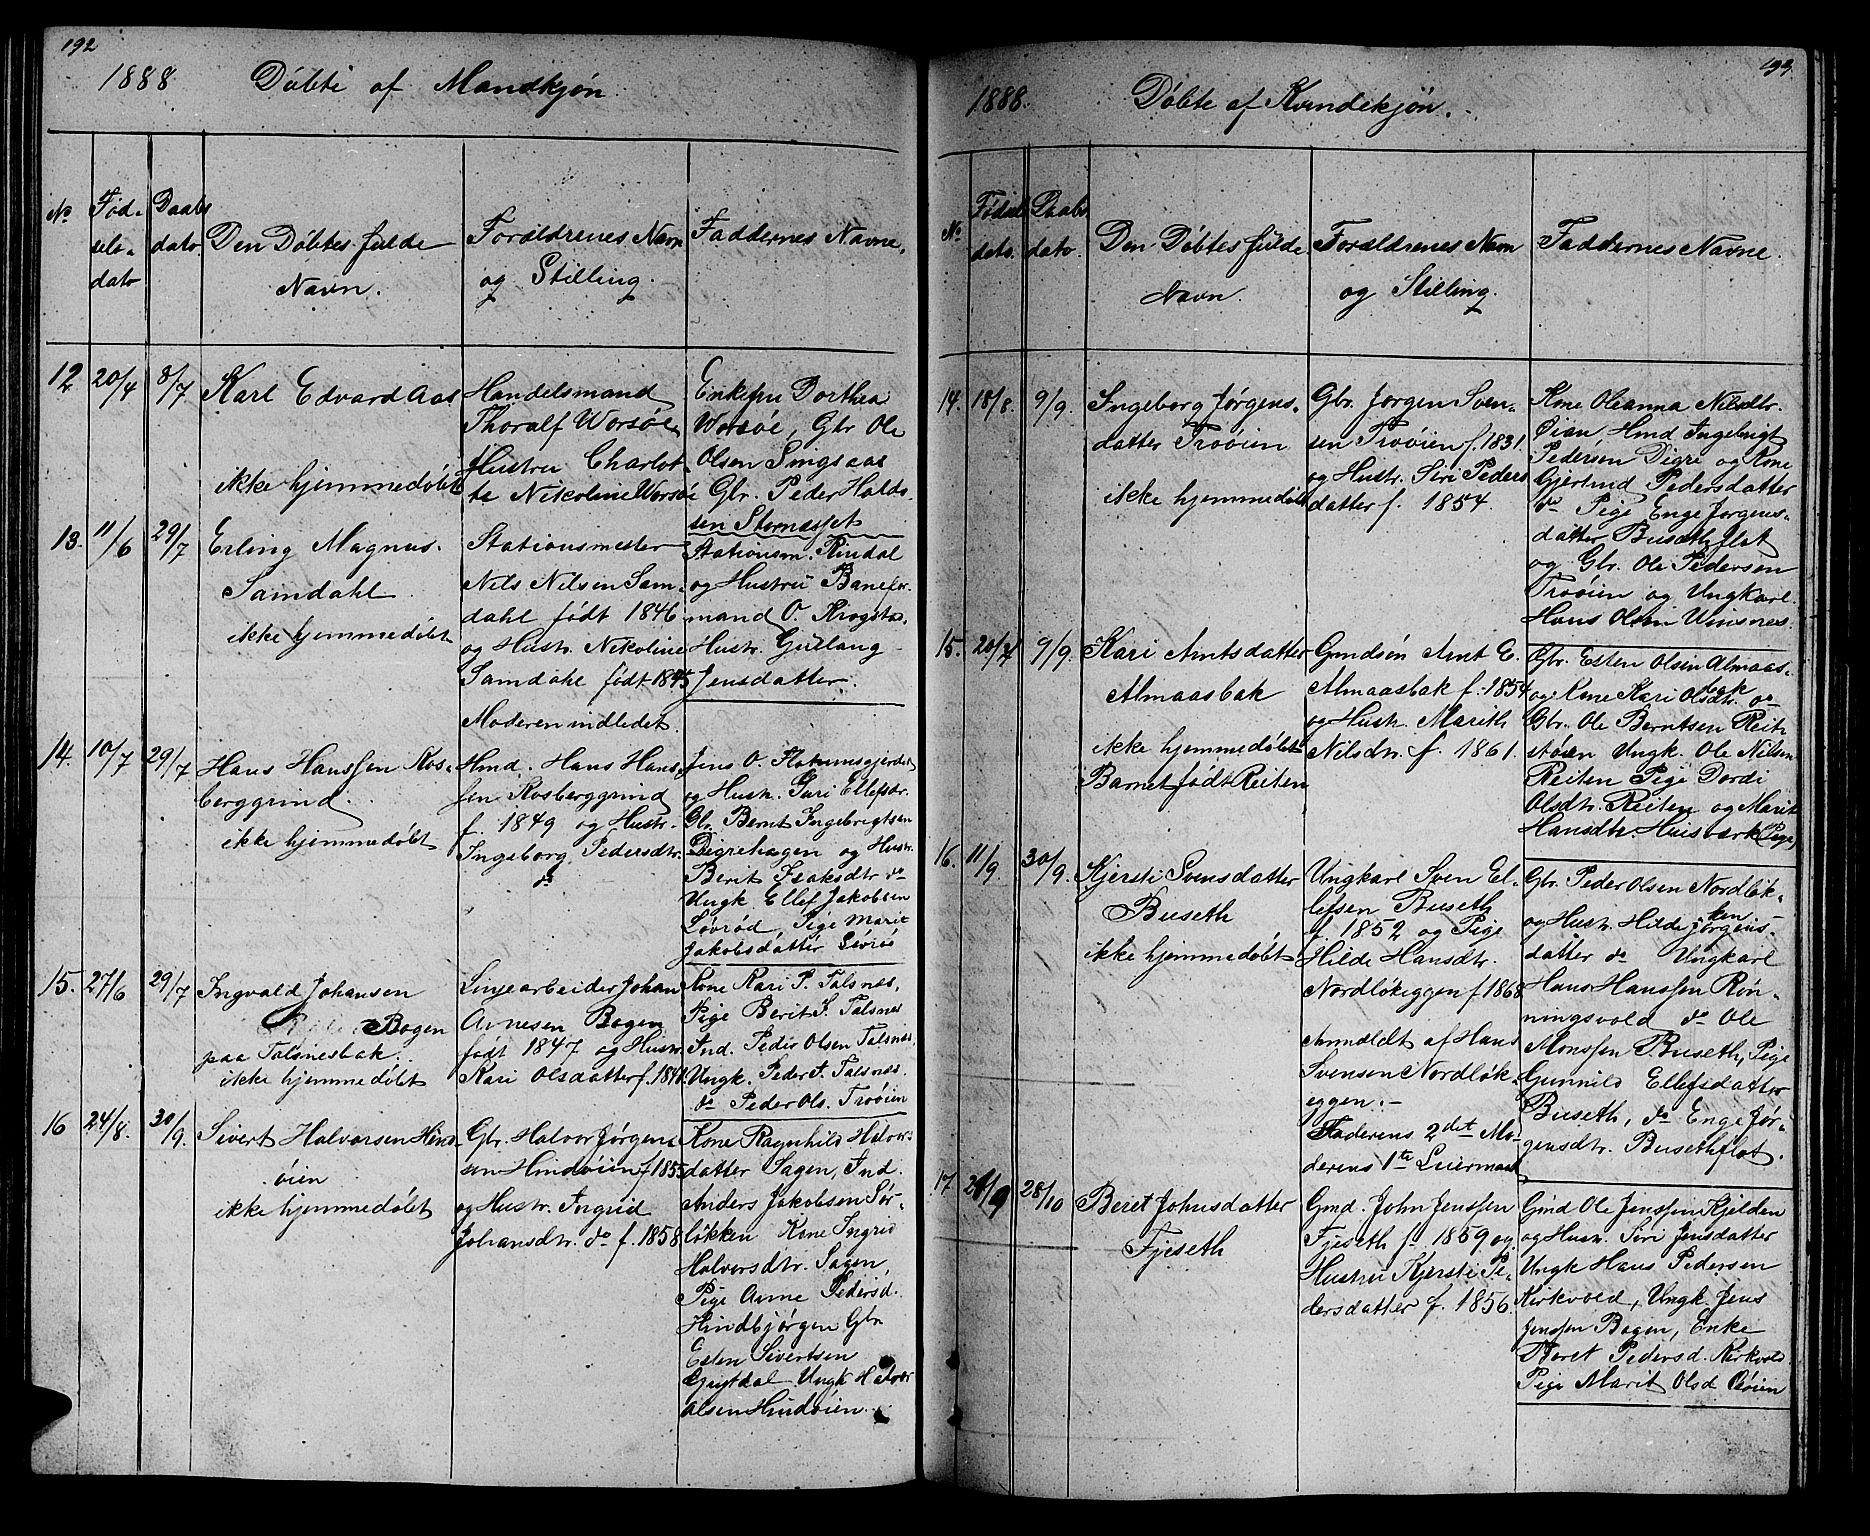 192
1888 Döbte af Mandkjøn
No
Fød-
sels-
dato
Daabs
dato
Den Döbtes fulde
Navn.
Forældrenes Navn
og Stilling.
Faddernes Navne.
12 20/4 8/7 Karl Edvard Aas
ikke hjemmedöbt
Handelsmand
Thoralf Worsöe
Hustru Charlot-
te Nikoline Worsöe
Enkefru Dorthea
Worsöe, Gbr Ole
Olsen Singsaas
Gbr. Peder Haldo-
sen
13. 11/6 29/7 Erling Magnus
Samdahl
ikke hjemmedöbt
Stationsmester
Nils Nilsen Sam-
dahl födt 1846
og Hustr. Nikoline
Samdahl födt 1845
Moderen indledet.
Stationsm. Rindal
og Hustru Banefor
mand O. Krogsta
Hustr. Gullaug
Jensdatter.
14. 10/7 29/7 Hans Hanssen Ros-
berggrind.
ikke hjemmedöbt
Hmd. Hans Hans-
sen Rosberggrind
f. 1849 og Hustr.
Ingeborg Pedersdtr.
do
Jens O.
og Hustr. Guri Ellefsdr.
Gbr Bernt Ingebrigtsen
Digrehagen og Hustr.
Berit Isaksdtr do
Ungk Ellef Jakobsen
Lövröd, Pige Marit
Jakobsdatter Lövröd
15. 27/6 29/7 Ingvald Johansen
Bogen
paa Talsnesbak.
ikke hjemmedöbt
Linjearbeider Johan
Arnesen Bogen
födt 1847 og Hustr
Kari Olsdatter f.
Kone Kari P. Talsnes,
Pige Berit I. Talsnes
Ind. Peder Olsen Talsnes
Ungk. Peder I. Talsnes.
do Peder Ols. Trööien
16 24/8. 30/9. Sivert Halvorsen Hind-
öien
ikke hjemmedöbt
Gbr. Halvor Jörgen-
sen Hindöien f 1855
og Hustr. Ingrid
Johansdtr. do f. 1858
Kone Ragnhild Halvors
datter Sagen, Ind.
Anders Jakobsen Sör-
lökken Kone Ingrid
Halvorsdtr. Sagen,
Pige Anne Pedersd.
Hindbjörgen Gbr
Esten Sivertsen
Ungk Halvor
Olsen Hindöien.
193.
1888. Döbte af Kvindekjön.
No
Födsels
dato.
Daabs
dato.
Den Döbtes fulde
Navn.
Forældrenes Navn
og Stilling.
Faddernes Navne.
14. 18/8. 9/9. Ingeborg Jörgens-
datter Trööien
ikke hjemmedöbt
Gbr. Jörgen Sven-
sen Trööien f. 1831
og Hustr. Siri Peders
datter f. 1854.
Kone Oleanna Nilsdtr.
Öien Hmd Ingebrigt
Pedersen Digre og Kone
Gjertrud Pedersdatter
do Pige Enge Jörgens-
datter Busethflot
og Gbr. Ole Pedersen
Trööien og Ungkarl
Hans Olsen Winsnes.
15. 20/7 9/9. Kari Arntsdatter
Almaasbak
ikke hjemmedöbt
Barnet födt Reiten
Grndsön Arnt E.
Almaasbak f. 1854
og Hustr. Marith
Nilsdtr f. 1861.
Gbr. Esten Olsen Almaas-
bak
og Kone Kari Olsdtr. do
Gbr. Ole Berntsen Reit-
stöen Ungk. Ole Nilsen
Reiten Pige Dordi
Olsdtr. Reiten og Marit
Hansdtr. Husværk (Pige)
16. 11/9 30/9. Kjersti Svensdatter
Buseth
ikke hjemmedöbt
Ungkarl Sven El-
lefsen Buseth
f. 1852 og Pige
Hilde Hansdtr.
Nordlökeggen f 1868
Anmeldt af Hans
Svensen Nordlök-
eggen.-
Faderens 2det Mo-
derens 1te Leiermaal
Gbr. Peder Olsen Nordlök-
ken
og Hustr. Hilde Jörgens-
datter do Ungkarl
Hans Hanssen Rön-
ningsvold do Ole
Monssen Buseth, Pige
Gunnild Ellefsdatter
Buseth, do Enge Jör-
gensdtr. Busethflot.
17 28/10 Beret Johnsdatter
Fjeseth
Gmd. John Jenssen
Fjeseth f. 1859 og
Hustru Kjersti Pe-
dersdatter f. 1856.
Gmd Ole Jenssen Kjelden
og Hustr. Siri Jensdatter
Ungk Hans Pedersen
Kirkvold, Ungk. Jens
Jenssen Bogen, Enke
Beret Pedersd. Kirkvold
Pige Marit Olsd